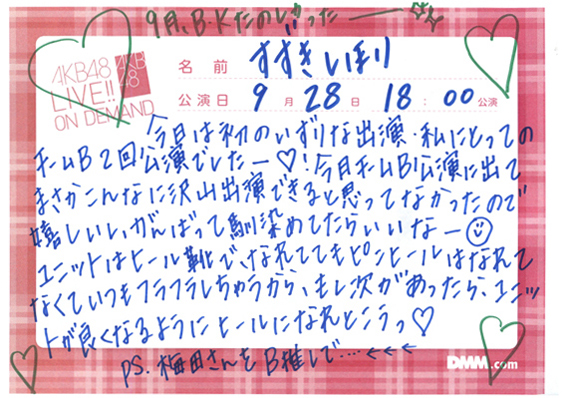 9月、B・Kたのしかったーーー
AKB48
LIVE!!
ON DEMAND
AKB
48
名前 すずきしほり
公演日 9月28日 18:00公演
今日は初のいずりな出演・私にとっての
チームB2回公演でしたー♡!今日チームB公演に出て
まさかこんなに沢山出演できると思ってなかったので
嬉しいし、がんばって馴染めてたらいいなー☺
ユニットはヒール靴で、なれててもピンヒールはなれて
なくていつもフラフラしちゃうから、もし次があったら、ユニッ
トが良くなるようにヒールになれとこうっ♡
PS. 梅田さんをB推しで....←←←
DMM.com